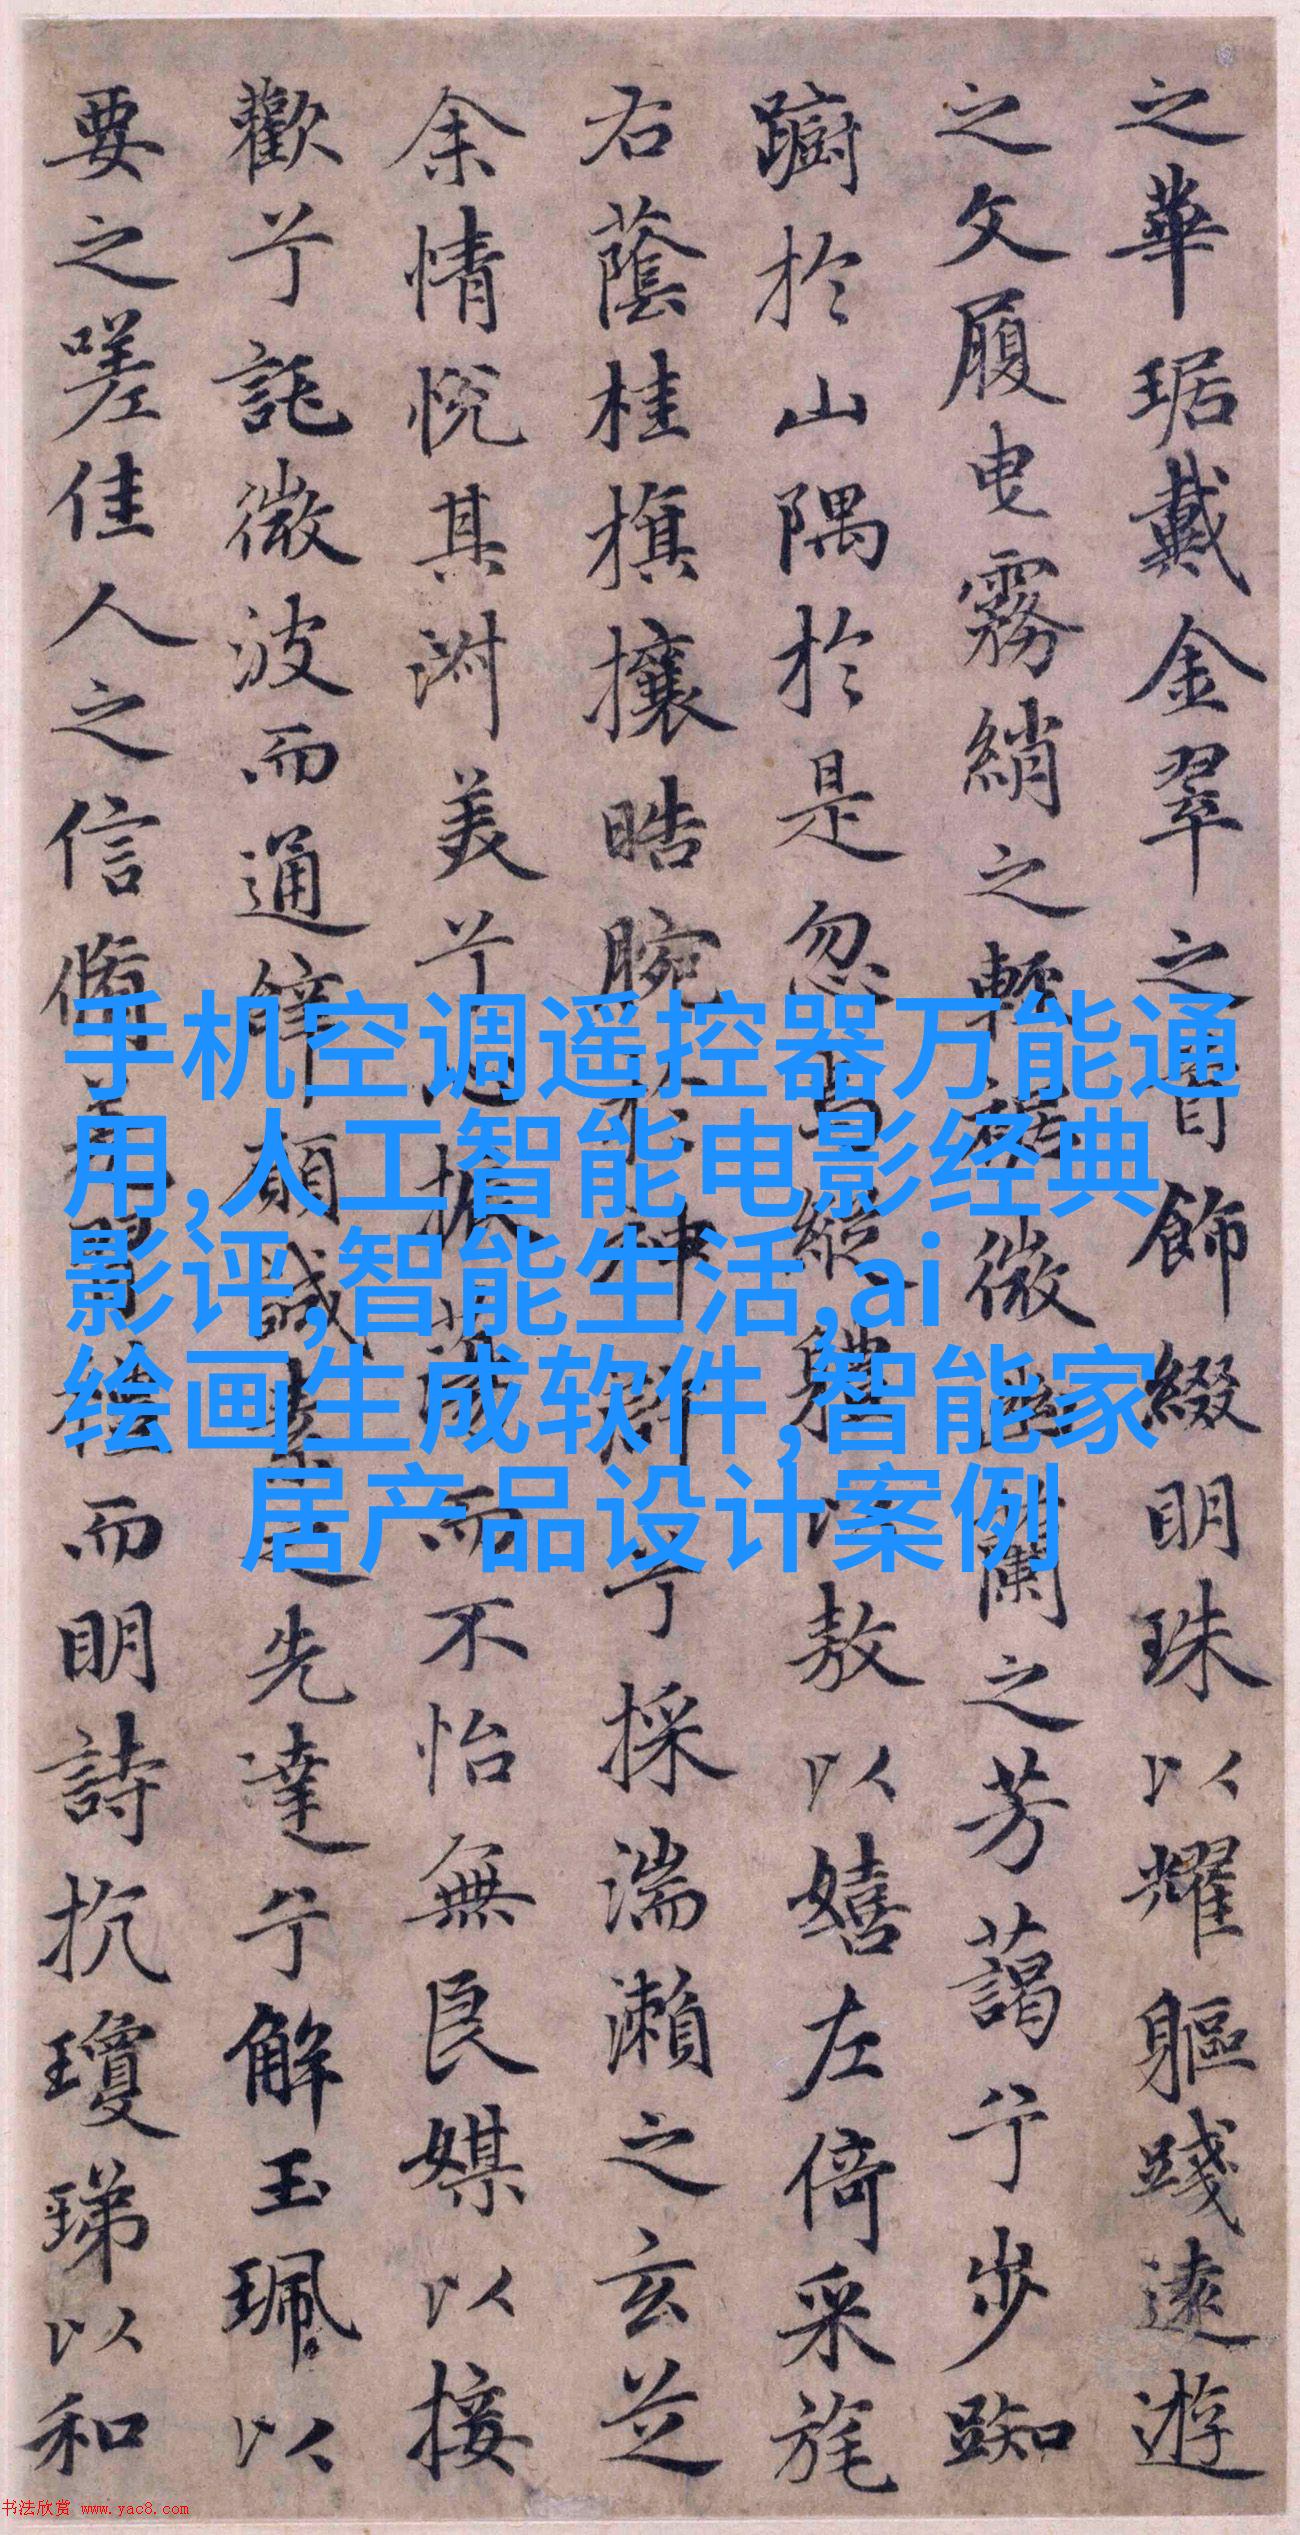 之華琚戴金翠之首飾綴明珠以耀軀踐遠遊
之文履曳霧綃之輕裾微幽蘭之芳藹兮步踟
蹰於山隅於是忽焉縱體以敖以嬉左倚采旄
右蔭桂旗攘晧腕於神滸兮採湍瀨之玄芝
余情悅其淑美兮心振蕩而不怡無良媒以接
歡兮託微波而通辭願誠素之先達兮解玉珮以
要之嗟佳人之信脩羌習禮而明詩抗瓊珶以和
手机空调遥控器万能通
用,人工智能电影经典
影评,智能生活,ai
绘画生成软件,智能家
居产品设计案例
书法欣赏 www.yac8.com